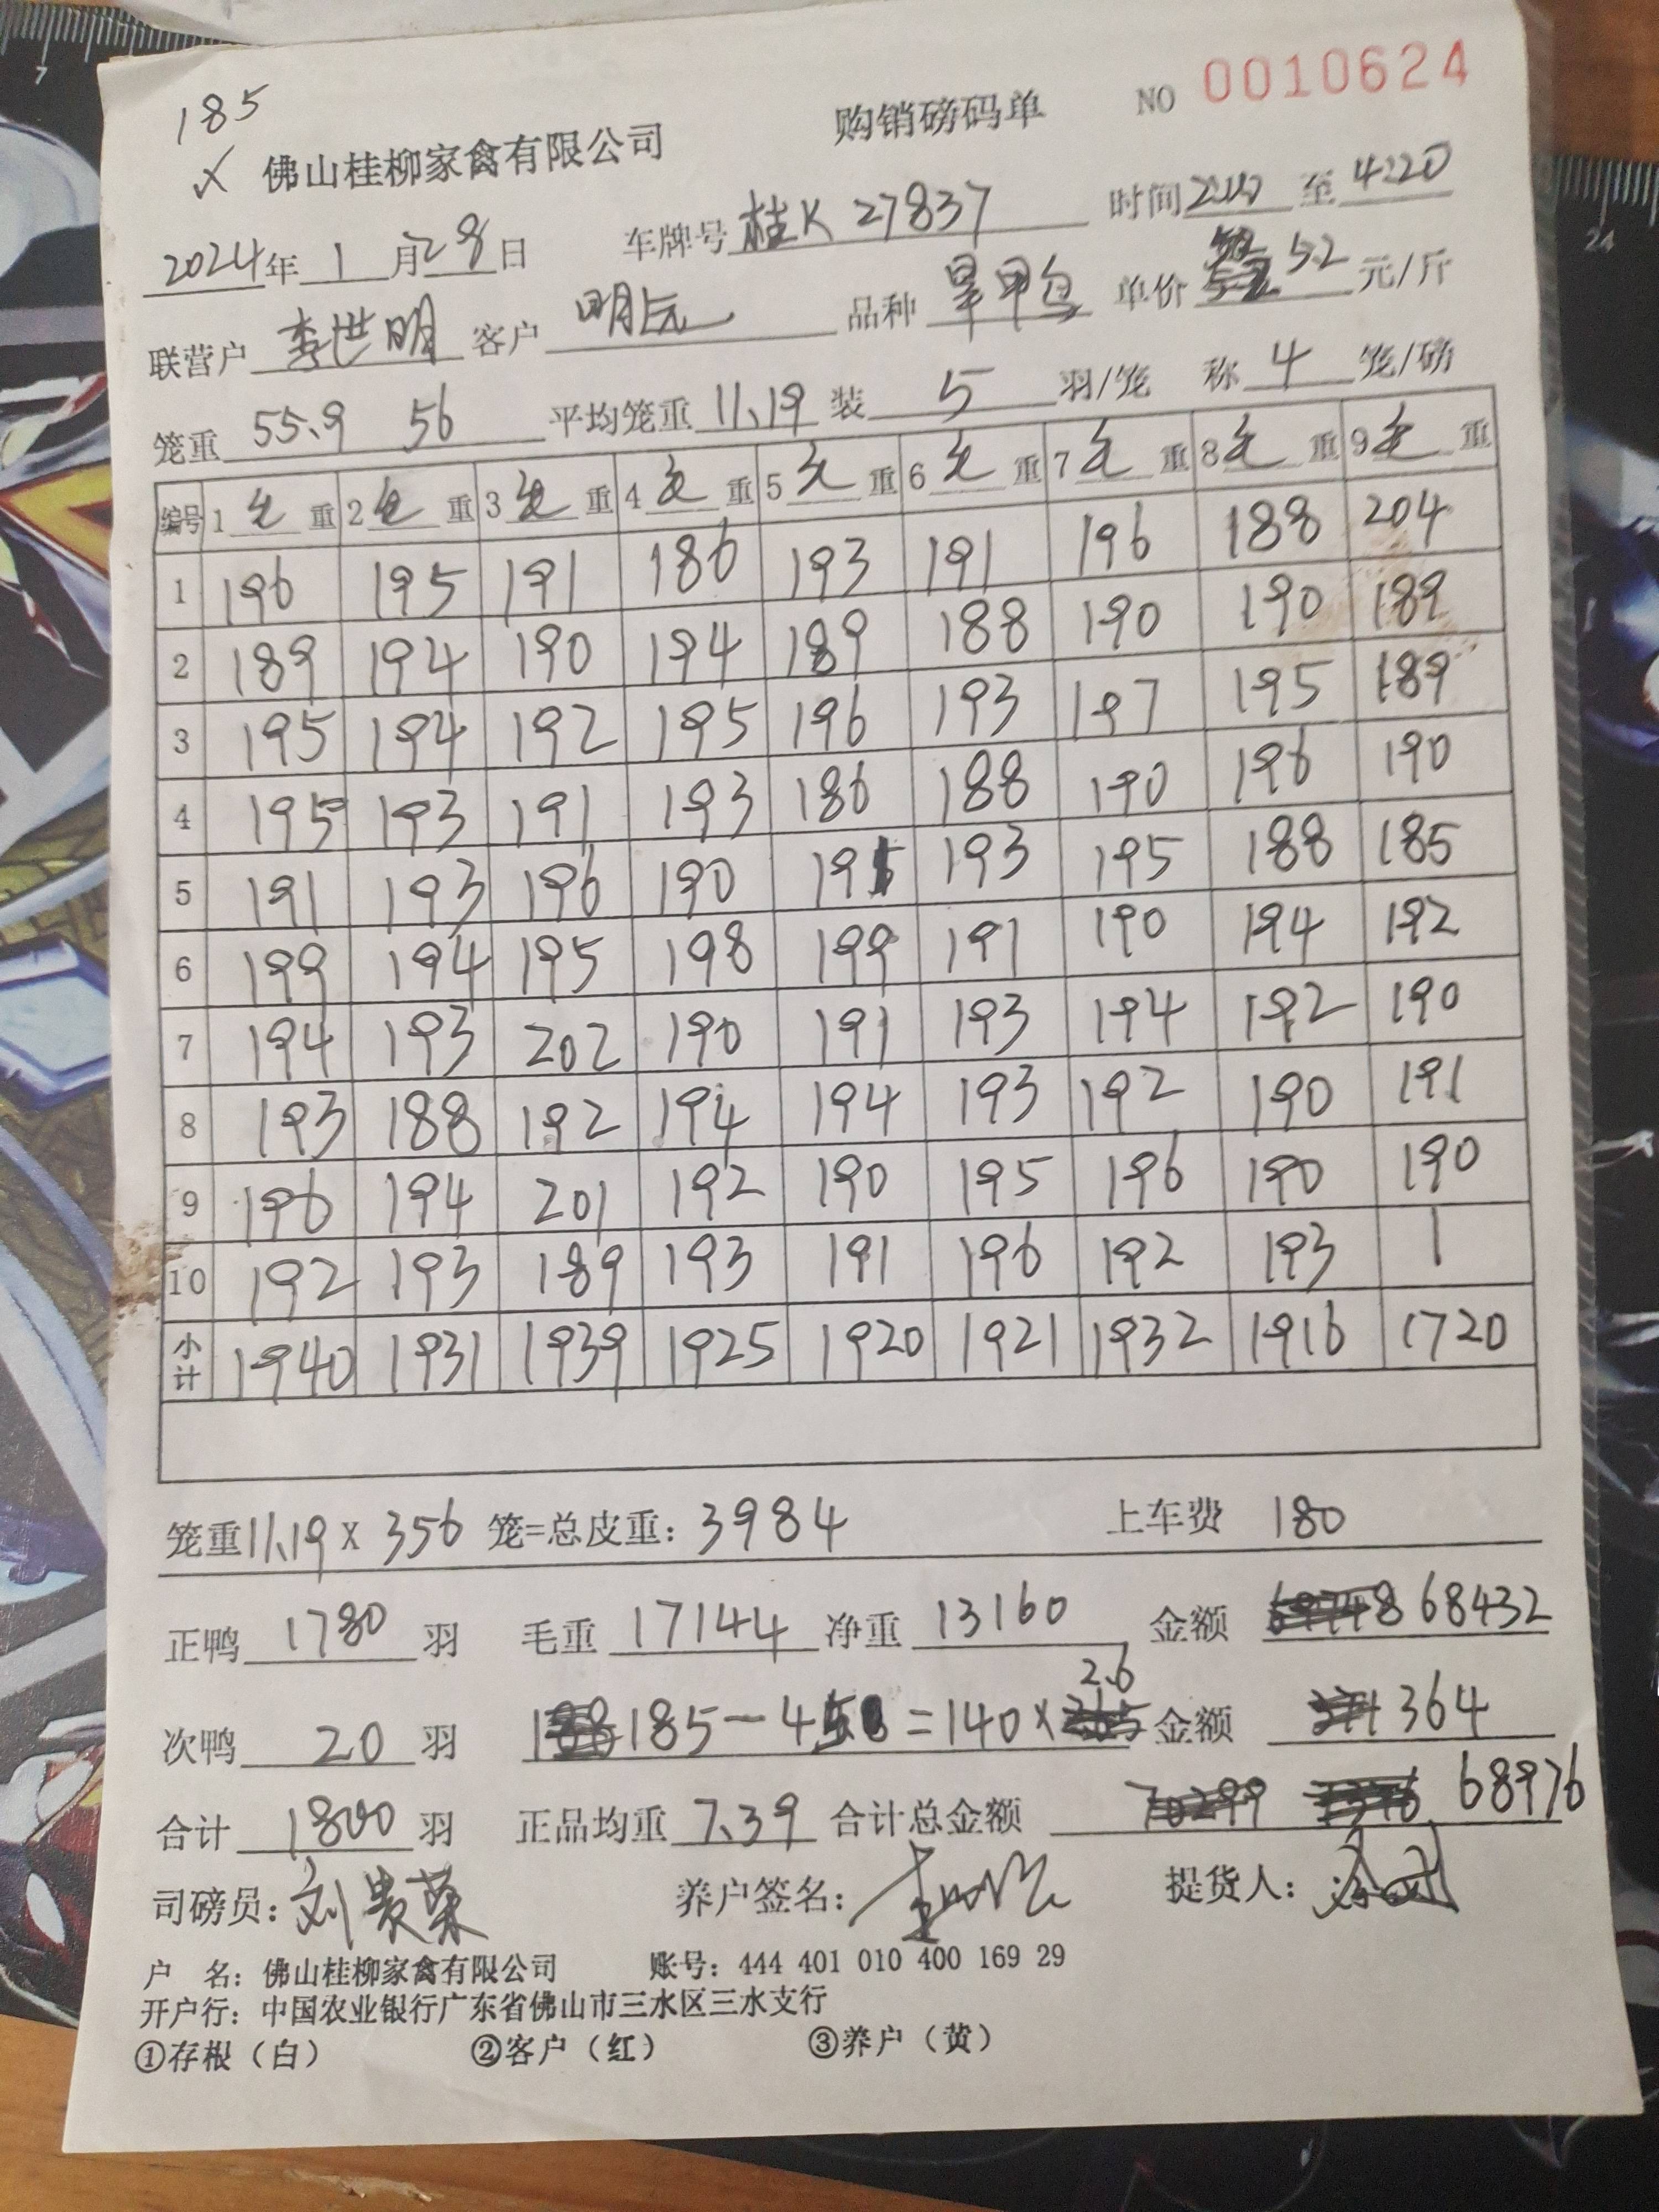 185
佛山桂柳家禽有限公司 购销磅码单 NO 0010624
2024年 1 月 28 日 车牌号 桂K 27837 时间 至 4:20
联营户 李世明 客户 明 品种 单价 52 元/斤
笼重 55.9 56 平均笼重 11.19 装 5 羽/笼 称 4 笼/磅
编号 1 毛 重 2 毛 重 3 毛 重 4 毛 重 5 毛 重 6 毛 重 7 毛 重 8 毛 重 9 毛 重
1 196 195 191 186 193 191 196 188 204
2 189 194 190 194 189 188 190 190 189
3 195 194 192 195 196 193 197 195 189
4 195 193 191 193 186 188 190 196 190
5 191 193 196 190 191 193 195 188 185
6 199 194 195 198 199 191 190 194 192
7 194 193 202 190 191 193 194 192 190
8 193 188 192 194 194 193 192 190 191
9 196 194 201 192 190 195 196 190 190
10 192 193 189 193 191 196 192 193
小计 1940 1931 1939 1925 1920 1921 1932 1916 1720
笼重 11.19 × 356 笼=总皮重: 3984 上车费 180
正鸭 1780 羽 毛重 17144 净重 13160 金额 68432
次鸭 20 羽 185-45=140× 2.6 金额 364
合计 1800 羽 正品均重 7.39 合计总金额 68976
司磅员: 刘贵荣 养户签名: 提货人:
户 名: 佛山桂柳家禽有限公司 账号: 444 401 010 400 169 29
开户行: 中国农业银行广东省佛山市三水区三水支行
①存根(白) ②客户(红) ③养户(黄)